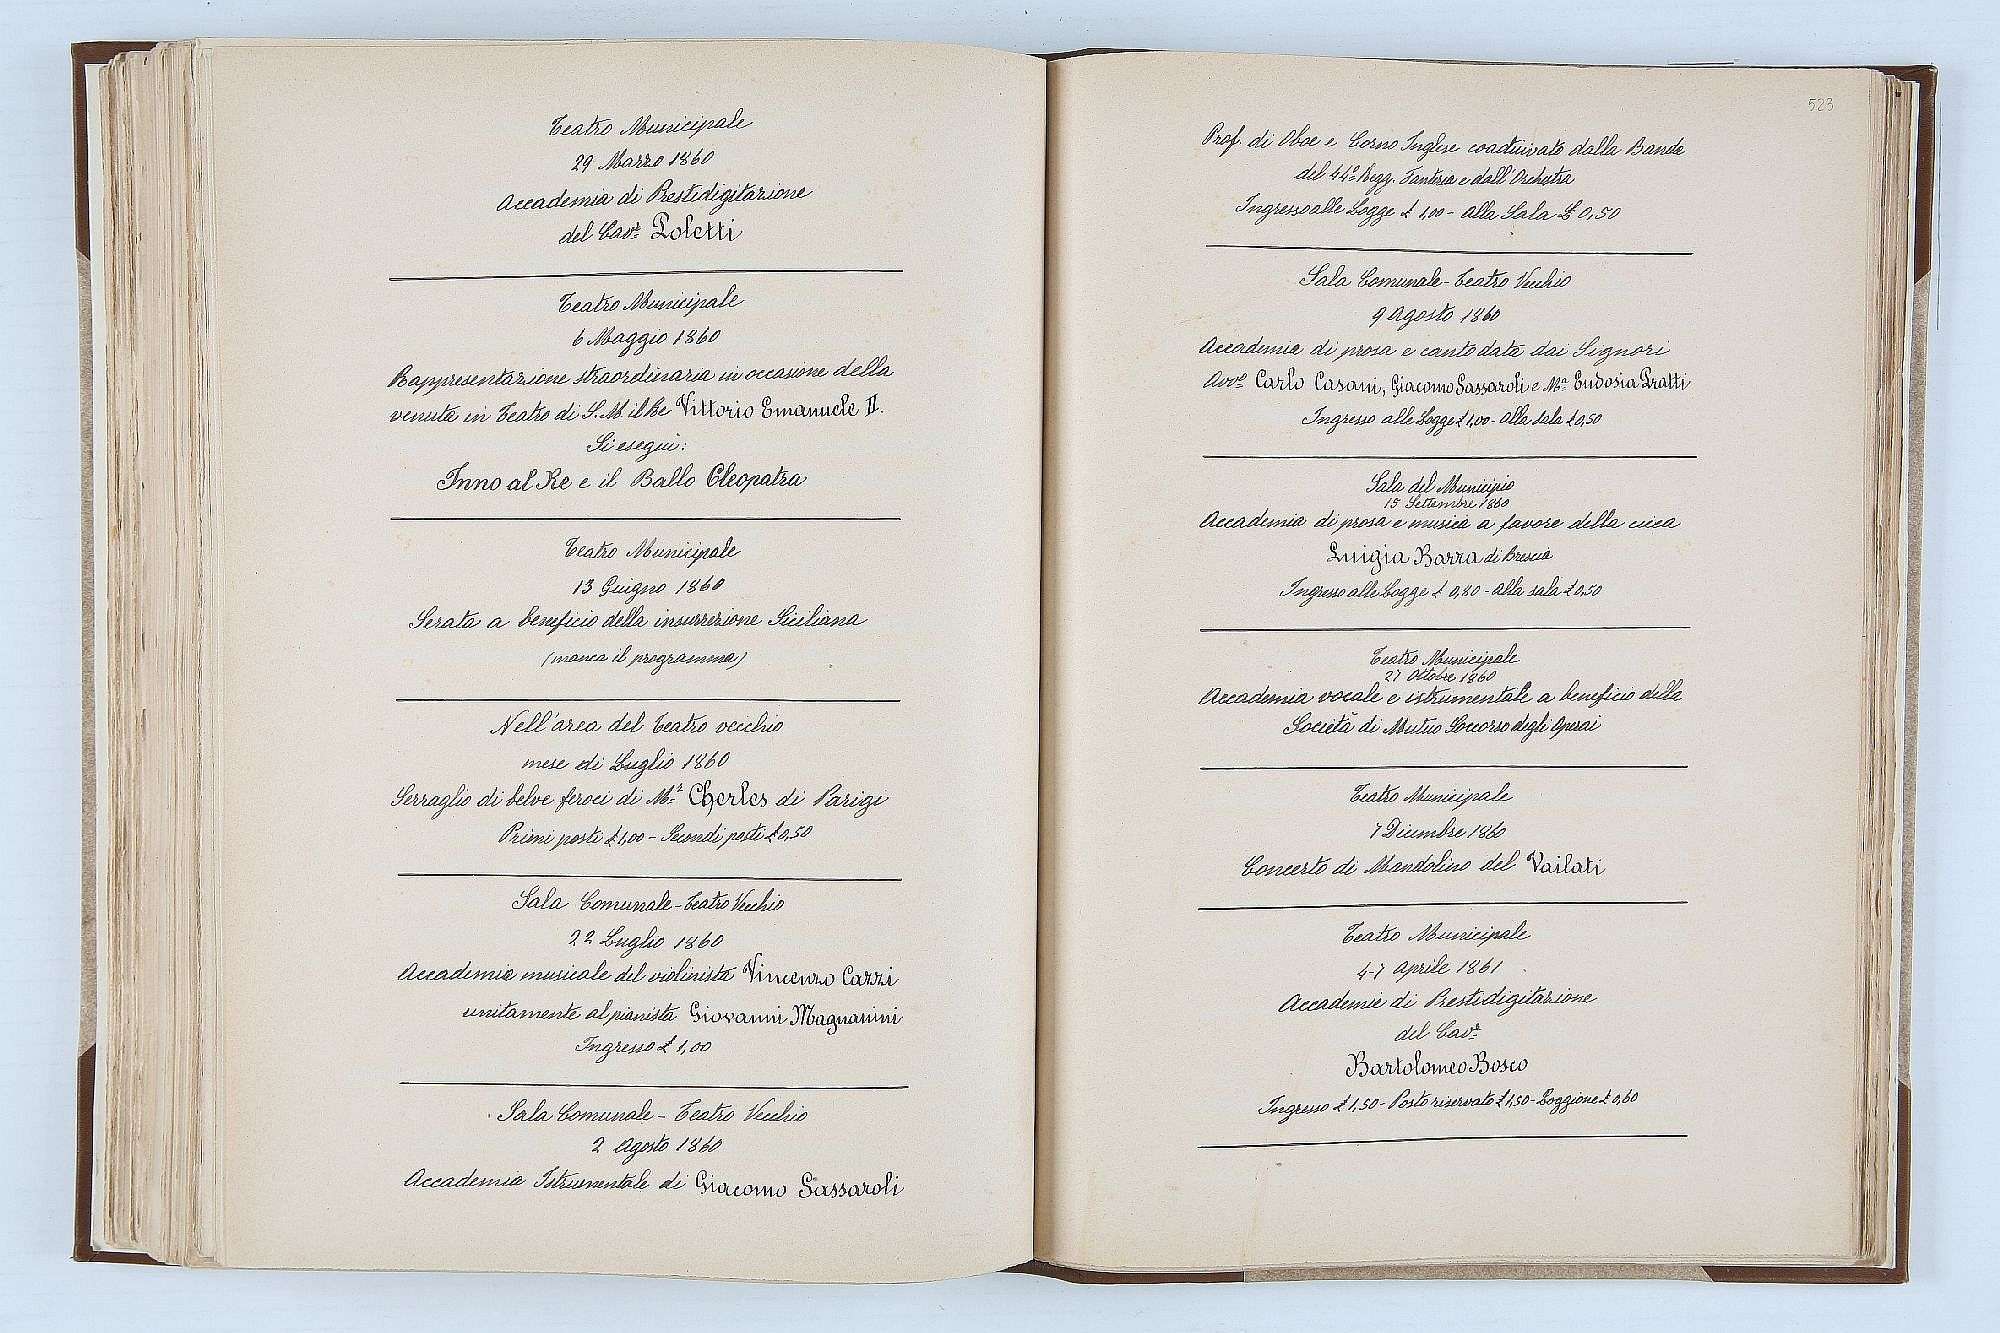 Teatro Municipale
29 Marzo 1860
Accademia di Prestidigitazione
del Cavr. Poletti
Teatro Municipale
6 Maggio 1860
Rappresentazione straordinaria in occasione della
venuta in Teatro di S. M il Re Vittorio Emanuele II.
Si eseguì:
Inno al Re e il Ballo Cleopatra
Teatro Municipale
13 Giugno 1860
Serata a beneficio della insurrezione Siciliana
(manca il programma)
Nell'area del Teatro vecchio
mese di Luglio 1860
Serraglio di belve feroci di Mr. Cherles di Parigi
Primi posti £ 1,00 - Secondi posti £ 0,50
Sala Comunale - Teatro Vecchio
22 Luglio 1860
Accademia musicale del violinista Vincenzo Cazzi
unitamente al pianista Giovanni Magnanini
Ingresso £ 1,00
Sala Comunale - Teatro Vecchio
2 Agosto 1860
Accademia Istrumentale di Giacomo Sassaroli
523
Prof. di Oboe e Corno Inglese coadiuvato dalla Banda
del 44o Regg. Fanteria e dall'Orchestra
Ingresso alle Logge £ 1,00 - alla Sala £ 0,50
Sala Comunale - Teatro Vecchio
9 Agosto 1860
Accademia di prosa e canto data dai Signori
Avvo Carlo Casani, Giacomo Sassaroli e Ma Eudosia Pratti
Ingresso alle Logge £ 1,00 - alla sala £ 0,50
Sala del Municipio
15 Settembre 1860
Accademia di prosa e musica a favore della cieca
Luigia Barra di Brescia
Ingresso alle Logge £ 0,80 - alla sala £ 0,50
Teatro Municipale
27 Ottobre 1860
Accademia vocale e istrumentale a beneficio della
Società di Mutuo Soccorso degli Operai
Teatro Municipale
7 Dicembre 1860
Concerto di Mandolino del Vailati
Teatro Municipale
4-7 Aprile 1861
Accademie di Prestidigitazione
del Cavr
Bartolomeo Bosco
Ingresso £ 1,50 - Posto riservato £ 1,50 - Loggione £ 0,60